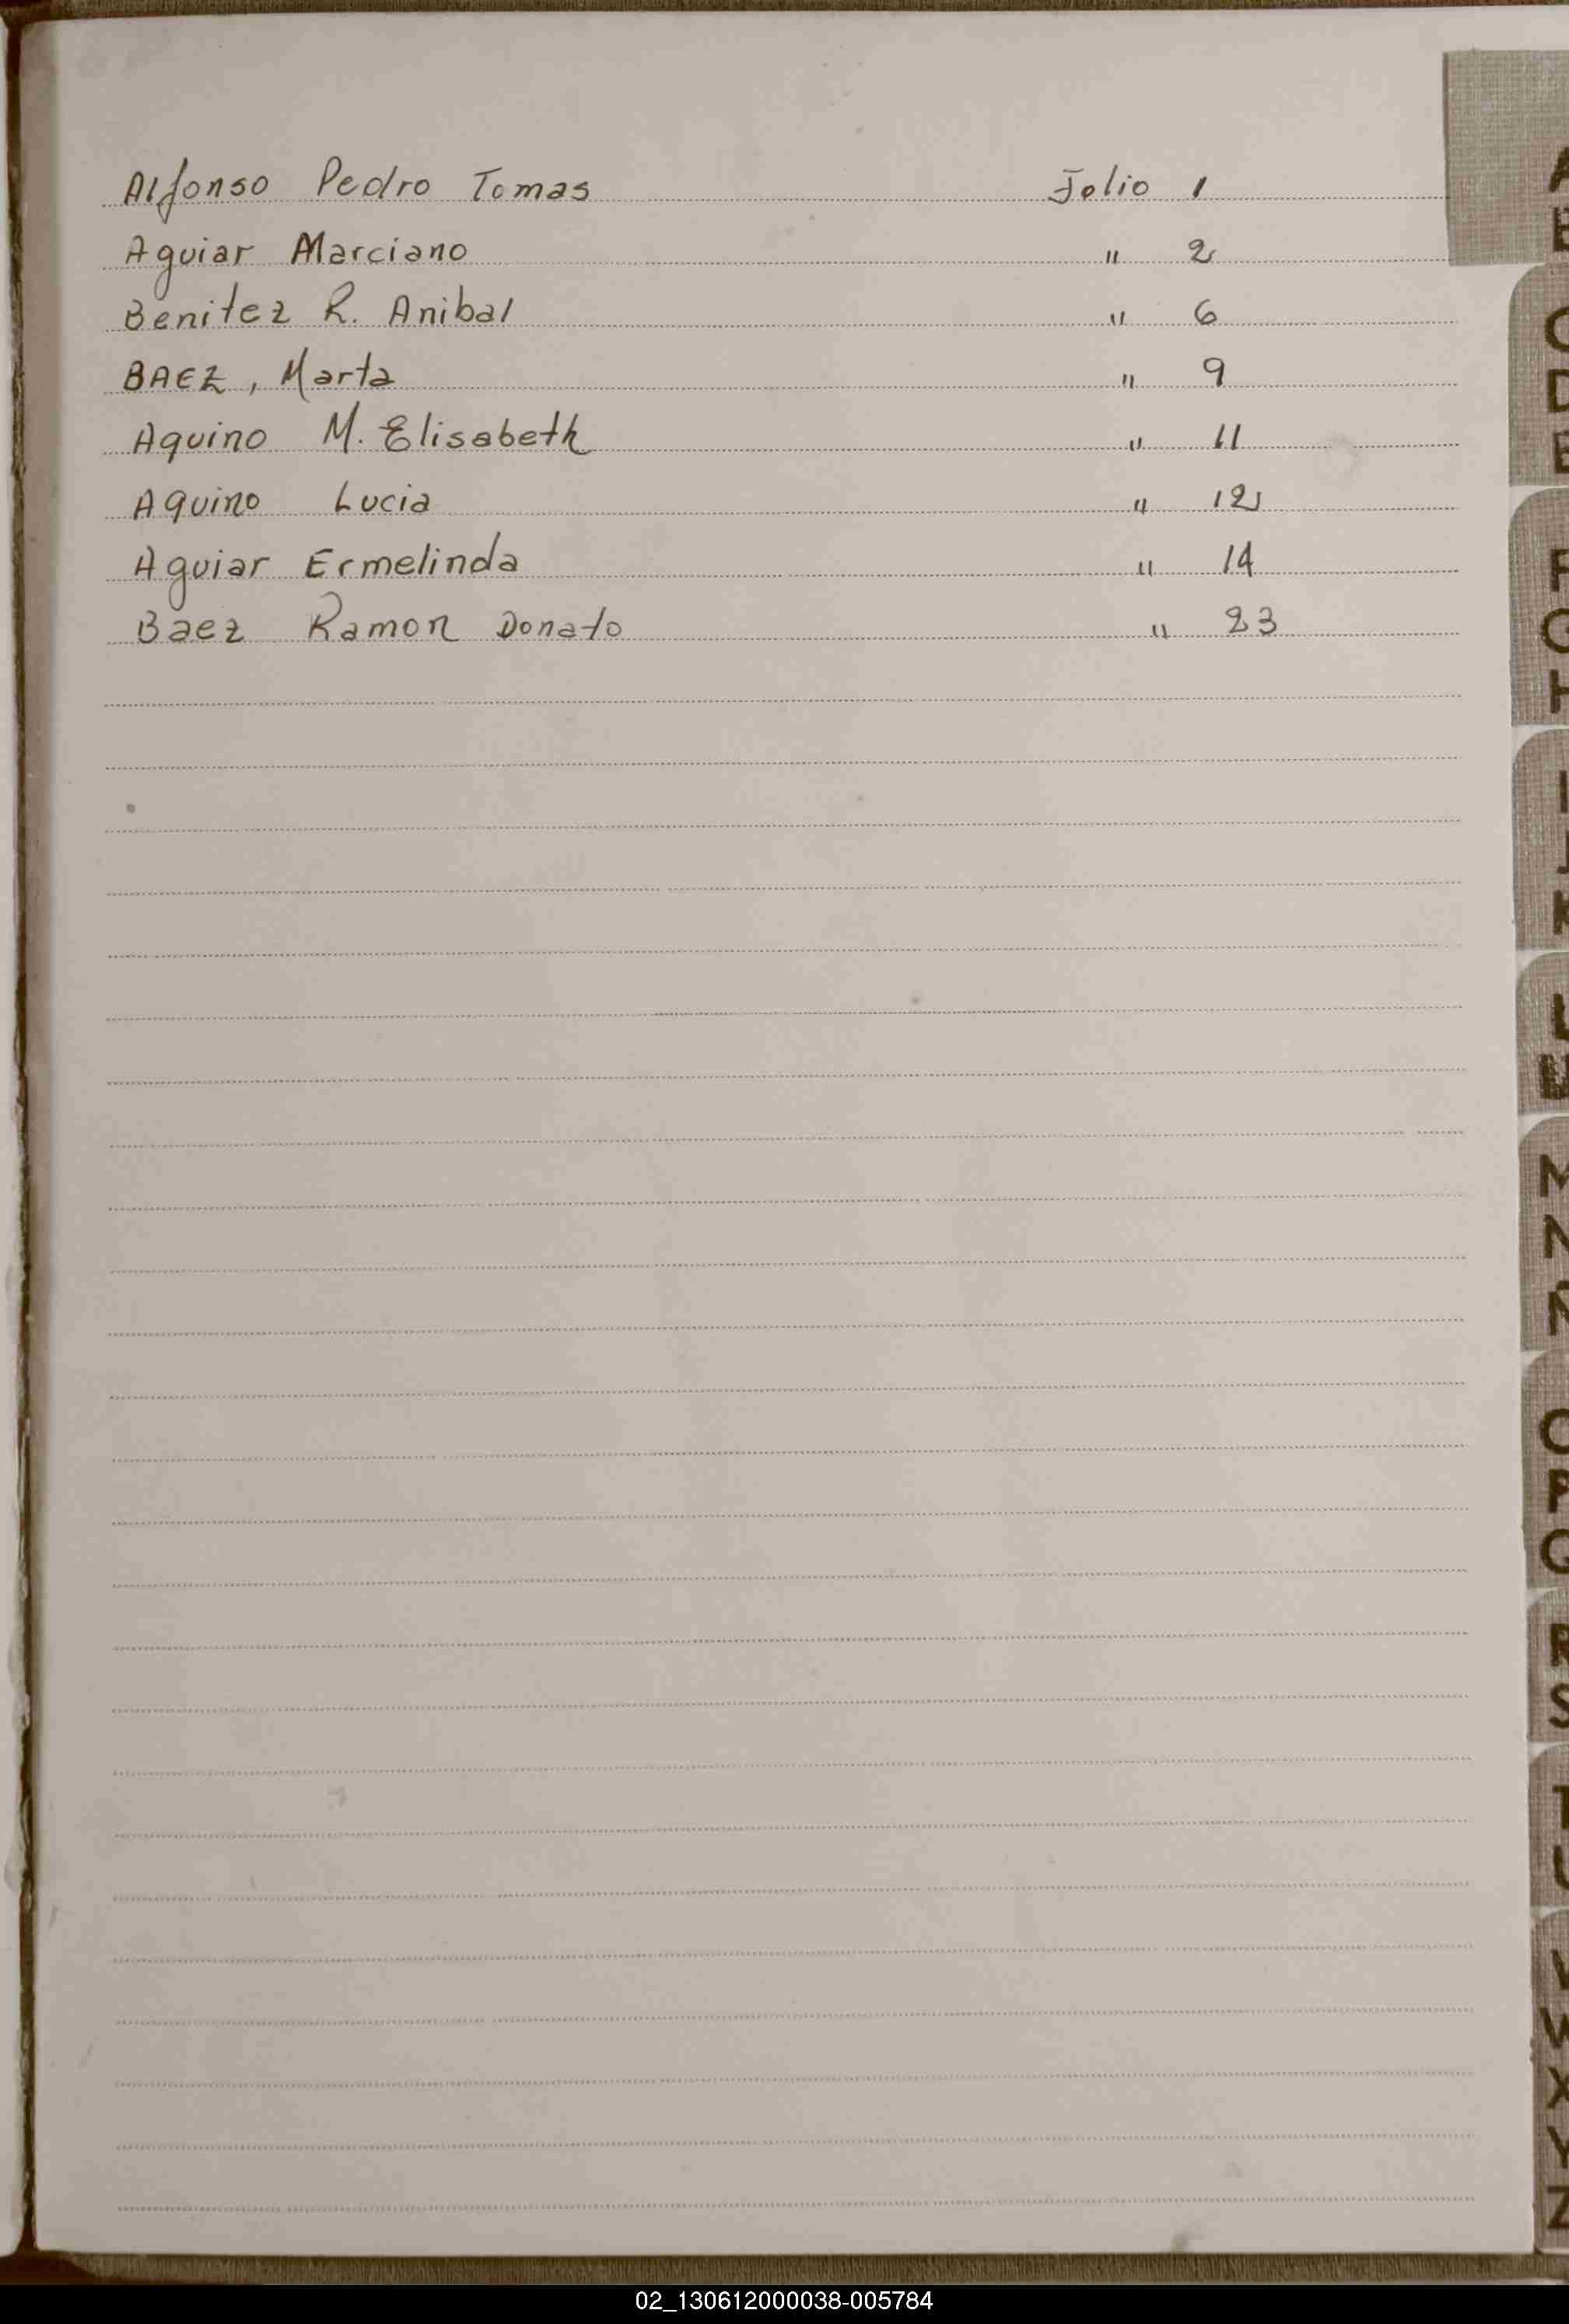 Alfonso Pedro Tomas Folio 1
Aguiar Marciano " 2
Benitez R. Anibal " 6
BAEZ, Marta " 9
Aquino M. Elisabeth " 11
Aquino Lucia " 12
Aguiar Ermelinda " 14
Baez Ramon Donato " 23
A
B
C
D
E
F
G
H
I
J
K
L
M
N
Ñ
O
P
Q
R
S
T
U
V
W
X
Y
Z
02_130612000038-005784